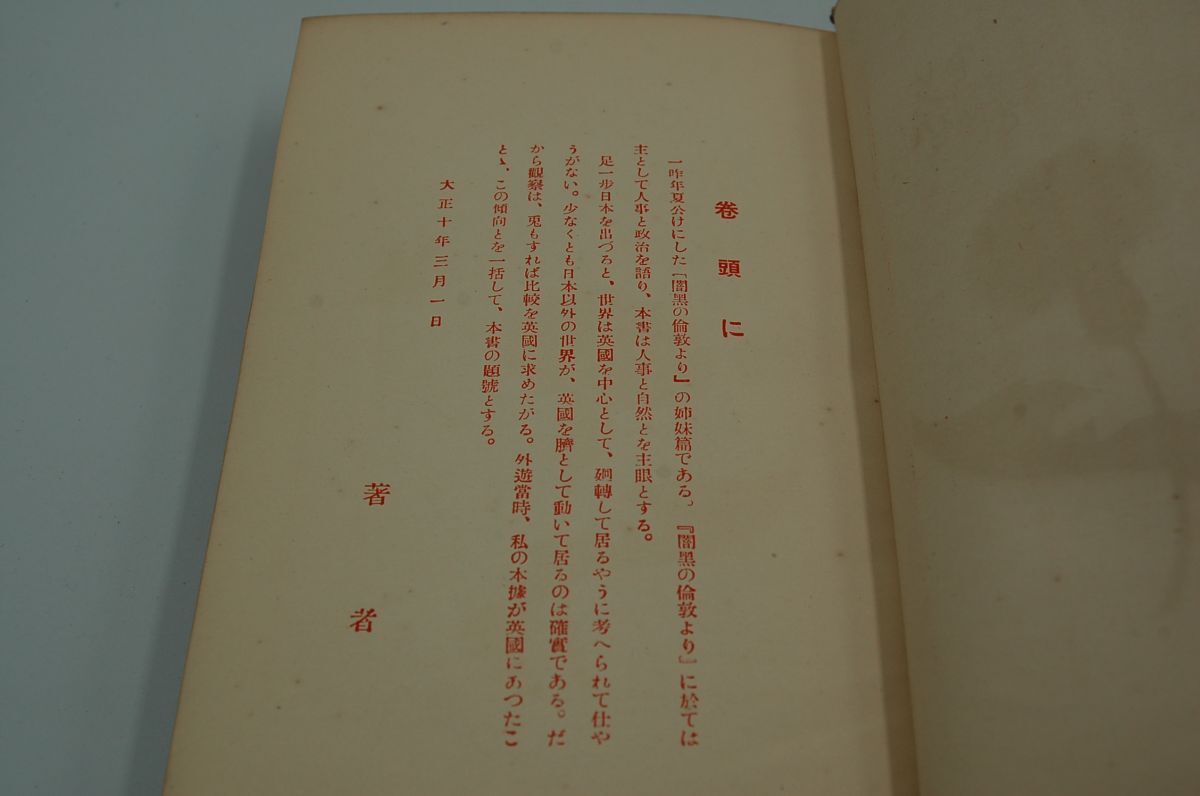 卷頭に
一昨年夏公けにした『闇黑の倫敦より』の姉妹篇である。『闇黑の倫敦より』に於ては
主として人事と政治を語り、本書は人事と自然とを主眼とする。
足一步日本を出づると、世界は英國を中心として、廻轉して居るやうに考へられて仕や
うがない。少なくとも日本以外の世界が、英國を臍として動いて居るのは確實である。だ
から觀察は、兎もすれば比較を英國に求めたがる。外遊當時、私の本據が英國にあつたこ
とゝ、この傾向とを一括して、本書の題號とする。
大正十年三月一日
著者